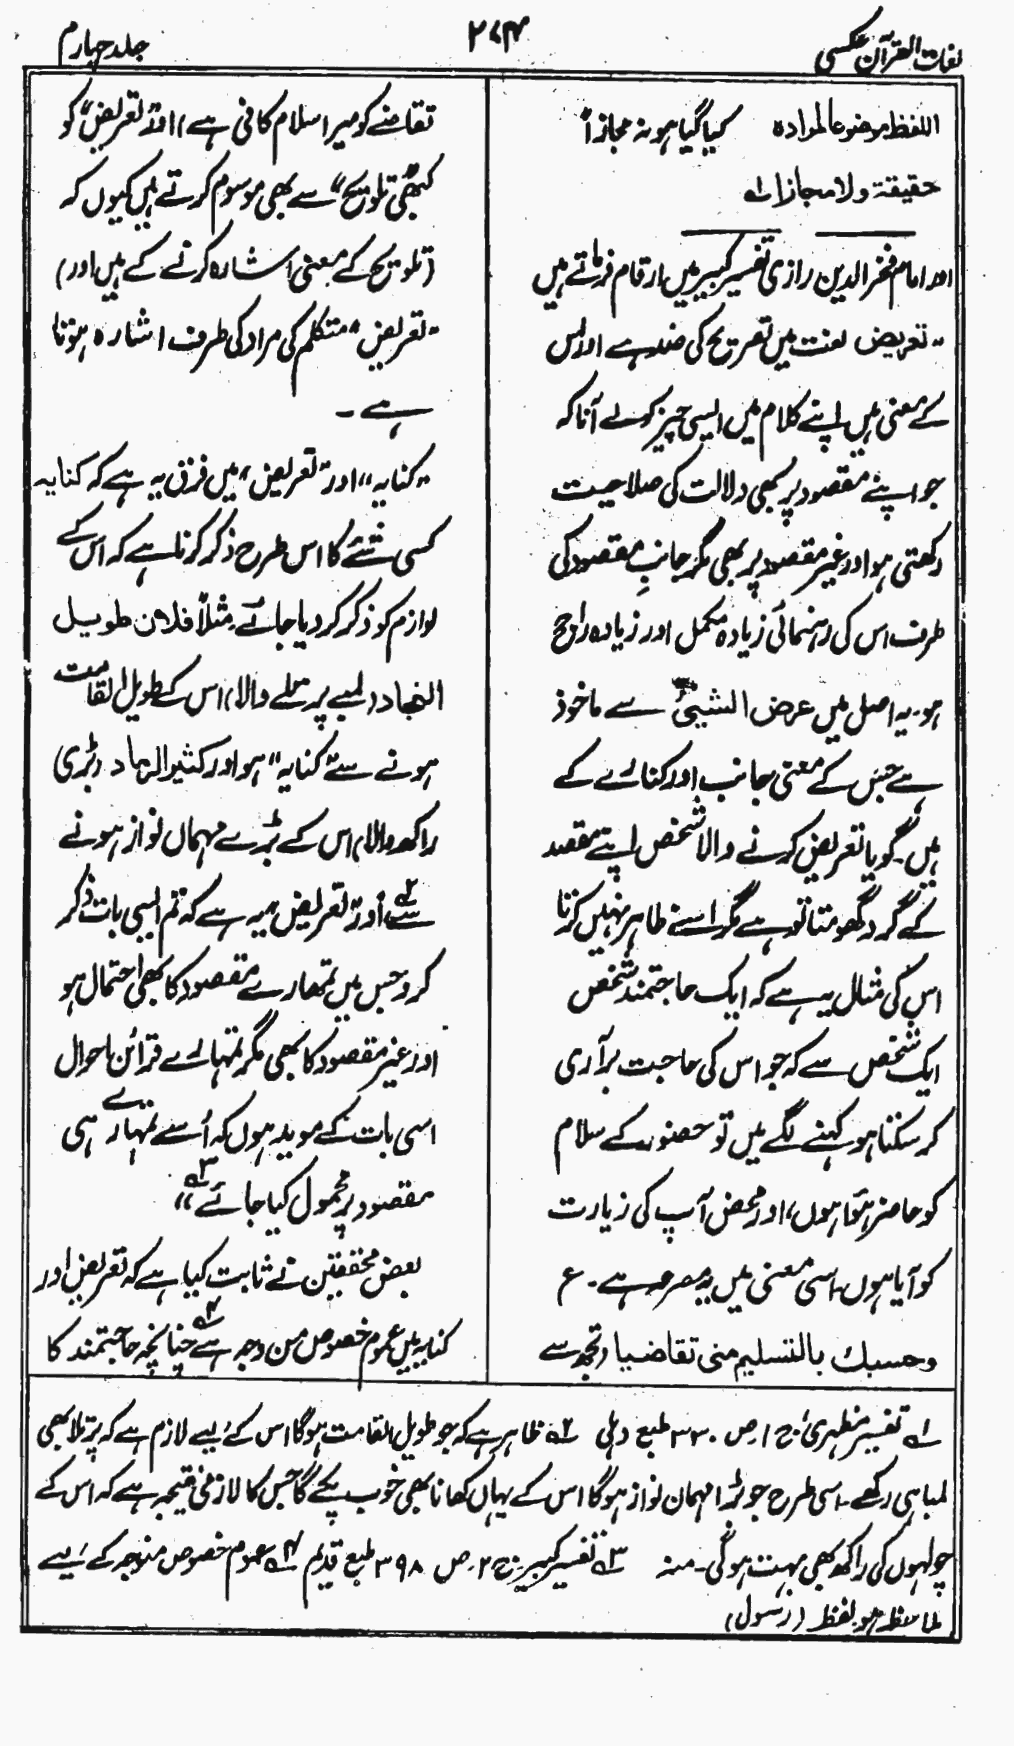 لغات القرآن عکسی
۲۷۴
جلد چہارم
اللفظ موضوعا لمرادہ کیا گیا ہو نہ مجازاً
حقیقۃ ولا مجازا لہ
اور امام فخر الدین رازی تفسیر کبیر میں ارقام فرماتے ہیں
"تعریض لغت میں تصریح کی ضد ہے اور اس
کے معنی ہیں اپنے کلام میں ایسی چیز کو لے آنا کہ
جو اپنے مقصود پر بھی دلالت کی صلاحیت
رکھتی ہو اور غیر مقصود پر بھی مگر جانبِ مقصود کی
طرف اس کی رہنمائی زیادہ مکمل اور زیادہ راجح
ہو۔ یہ اصل میں عرض الشیئ سے ماخوذ
ہے جس کے معنی جانب اور کنارے کے
ہیں۔ گویا تعریض کرنے والا شخص اپنے مقصد
کے گرد گھومتا تو ہے مگر اسے ظاہر نہیں کرتا
اس کی مثال یہ ہے کہ ایک حاجتمند شخص
ایک شخص سے کہ جو اس کی حاجت برآری
کر سکتا ہو کہنے لگے میں تو حضور کے سلام
کو حاضر ہوا ہوں، اور محض آپ کی زیارت
کو آیا ہوں۔ اسی معنی میں یہ مصرعہ ہے۔ ع
وحسبك بالتسليم منى تقاضيا (تجھ سے
تقاضے کو میرا سلام کافی ہے) اور تعریض" کو
کبھی "تلویح" سے بھی موسوم کرتے ہیں کیوں کہ
(تلویح کے معنی اشارہ کرنے کے ہیں اور)
"تعریض" متکلم کی مراد کی طرف اشارہ ہوتا
ہے۔
"کنایہ" اور "تعریض" میں فرق یہ ہے کہ کنایہ
کسی شئے کا اس طرح ذکر کرنا ہے کہ اس کے
لوازم کو ذکر کر دیا جائے۔ مثلاً فلان طویل
النجاد (لمبے پرتلے والا) اس کے طویل القامت
ہونے سے "کنایہ" ہو اور کثیر الرماد (بڑی
راکھ والا) اس کے بڑے مہماں نواز ہونے
سے ۲ اور "تعریض" یہ ہے کہ تم ایسی بات ذکر
کرو جس میں تمھارے مقصود کا بھی احتمال ہو
اور غیر مقصود کا بھی مگر تمہارے قرائن احوال
اسی بات کے موید ہوں کہ اُسے تمہارے ہی
مقصود پر محمول کیا جائے ۳"
بعض محققین نے ثابت کیا ہے کہ تعریض اور
کنایہ میں عموم خصوص من وجہ ہے ۴ چنانچہ حاجتمند کا
۱ تفسیر مظہری ج ۱ ص ۳۳۰ طبع دہلی ۲ ظاہر ہے کہ جو طویل القامت ہوگا اس کے لیے لازم ہے کہ پرتلا بھی
لمبا ہی رکھے۔ اسی طرح جو بڑا مہمان نواز ہوگا اس کے یہاں کھانا بھی خوب پکے گا جس کا لازمی نتیجہ ہے کہ اس کے
چولہوں کی راکھ بھی بہت ہوگی۔ منہ ۳ تفسیر کبیر ج ۲ ص ۳۹۸ طبع قدیم ۴ عموم خصوص من وجہ کے لیے
ملاحظہ ہو لفظ (رسول)